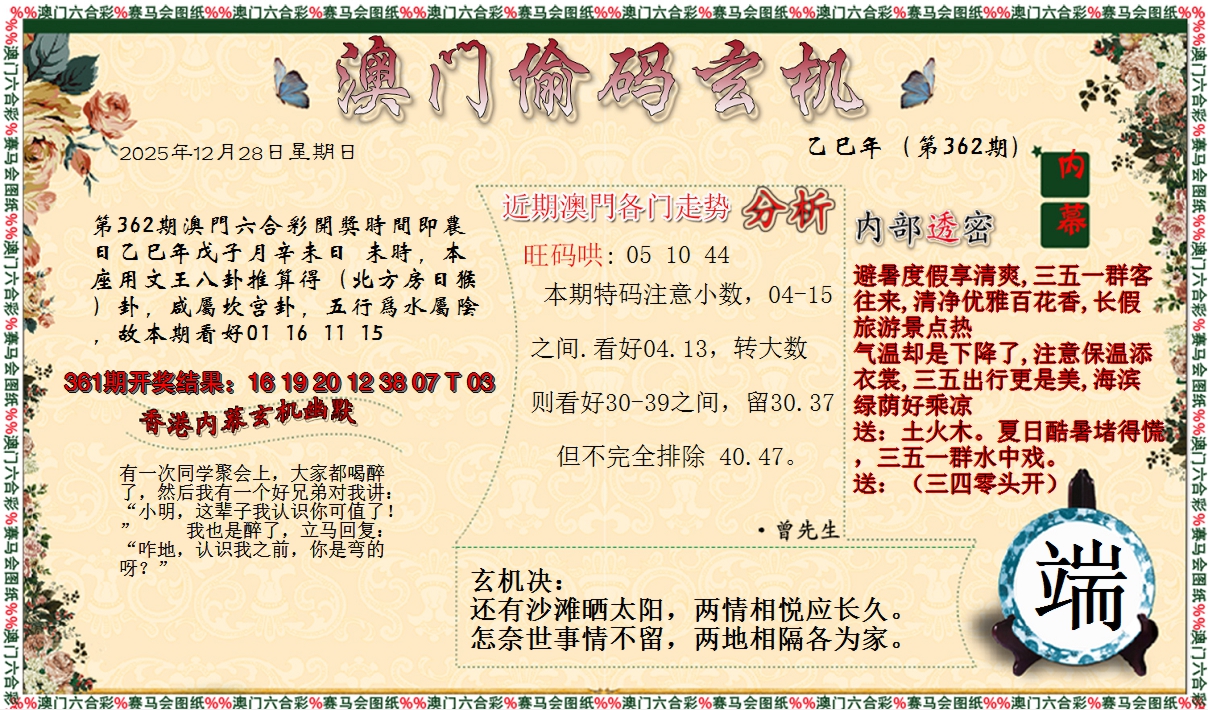 %%澳门六合彩%赛马会图纸%%澳门六合彩%赛马会图纸%%澳门六合彩%赛马会图纸%%澳门六合彩%赛马会图纸%%澳门六合彩%赛马会图纸%%澳门六合彩%赛马会图纸%%
澳门偷码玄机
2025年12月28日星期日
乙巳年（第362期）
第362期澳門六合彩開獎時間即農
日乙巳年戊子月辛未日 未時，本
座用文王八卦推算得（北方房日猴
）卦，咸屬坎宫卦，五行爲水屬陰
，故本期看好01 16 11 15
361期开奖结果：16 19 20 12 38 07 T 03
香港内幕玄机幽默
有一次同学聚会上，大家都喝醉
了，然后我有一个好兄弟对我讲：
“小明，这辈子我认识你可值了！
” 我也是醉了，立马回复：
“咋地，认识我之前，你是弯的
呀？”
近期澳門各门走势 分析
旺码哄：05 10 44
本期特码注意小数，04-15
之间.看好04.13，转大数
则看好30-39之间，留30.37
但不完全排除 40.47。
·曾先生
内幕
内部透密
避暑度假享清爽,三五一群客
往来,清净优雅百花香,长假
旅游景点热
气温却是下降了,注意保温添
衣裳,三五出行更是美,海滨
绿荫好乘凉
送：土火木。夏日酷暑堵得慌
，三五一群水中戏。
送：（三四零头开）
玄机决：
还有沙滩晒太阳，两情相悦应长久。
怎奈世事情不留，两地相隔各为家。
端
%%澳门六合彩%赛马会图纸%%澳门六合彩%赛马会图纸%%澳门六合彩%赛马会图纸%%澳门六合彩%赛马会图纸%%澳门六合彩%赛马会图纸%%澳门六合彩%赛马会图纸%%